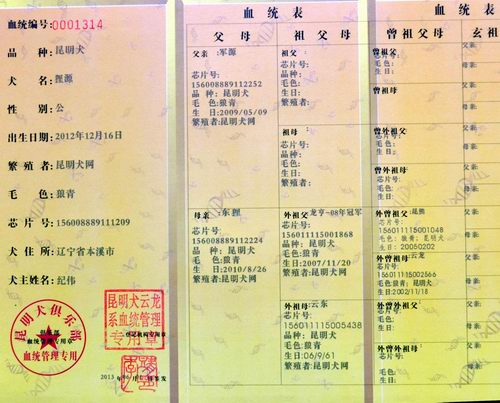 血统编号:0001314
品 种:昆明犬
犬 名:狸源
性 别:公
出生日期:2012年12月16日
繁殖者:昆明犬网
毛 色:狼青
芯片号:156008889111209
犬住所:辽宁省本溪市
犬主姓名:纪伟
昆明犬俱乐部
血统管理专用章
血统管理专用
昆明犬云龙
系血统管理
专用章
血统表
父母 祖父母 曾祖父母 玄祖
父亲:军源
芯片号:
156008889112252
品种:昆明犬
毛色:狼青
生日:2009/05/09
繁殖者:昆明犬网
母亲:东狸
芯片号:
156008889112224
品种:昆明犬
毛色:狼青
生日:2010/8/26
繁殖者:昆明犬网
祖父:
芯片号:
品种:
毛色:
生日:
繁殖者:
祖母:
芯片号:
品种:
毛色:
生日:
繁殖者:
外祖父:龙亨-08年冠军
芯片号:
156011115001868
品种:昆明犬
毛色:狼青
生日:2007/11/20
繁殖者:昆明犬网
外祖母:云东
芯片号:
156011115005438
品种:昆明犬
毛色:狼青
生日:06/9/61
繁殖者:昆明犬网
曾祖父:
芯片号:
毛色:
生日:
曾祖母:
曾外祖父:
芯片号:
毛色:
生日:
曾外祖母:
外曾祖父:昆熊
芯片号:
156011115001048
毛色:狼青;昆明犬
生日:20050202
外曾祖母:云龙
芯片号:
156011115002566
毛色:狼青;昆明犬
生日:2002/11/18
外曾外祖父:
芯片号:
毛色:
生日:
外曾外祖母:
芯片号:
毛色:
生日:
父亲:
母亲:
父亲:
母亲:
父亲:
母亲:
父亲:
母亲:
父亲:
母亲:
父亲:
母亲:
父亲: